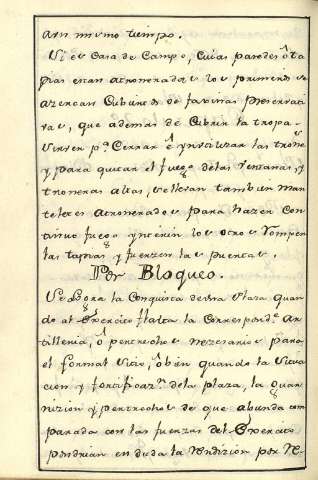 a un mismo tiempo.
Si es Casa de Campo, cuias paredes ô ta
pias estan atroneradas, los primeros se
azercan Cubiertos de faxinas preservati
vas, que ademas de Cubrir la tropa
sirven pª Cerrar ê ynutilizar las trone
y para quitar el fuego delas Ventanas, y
troneras altas, se llevan tambien man
teletes atronerados para hazer con
tinuo fuego ynterin los otros rompen
las tapias y fuerzen las puertas.
Por Bloqueo.
Se logra la Conquista de una Plaza quan
do al Exercito falta la Correspondte. ar
tilleria, ô pertrechos nezesarios para
el formal sitio, ô bien quando la situa
cion y fortificazn. dela plaza, la guar
nizion y pertrechos de que abunda com
parada con las fuerzas del Exercito
pondrian en duda la rendizion por re